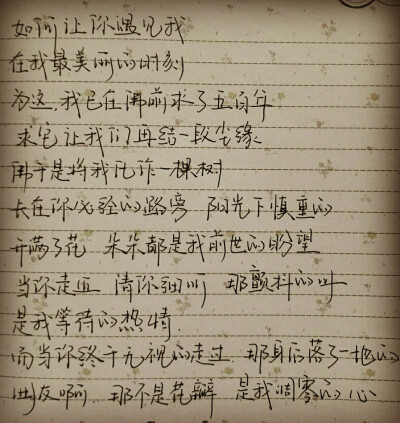 如何让你遇见我
在我最美丽的时刻
为这,我已在佛前求了五百年
求它让我们再结一段尘缘
佛于是将我化作一棵树
长在你必经的路旁 阳光下慎重的
开满了花 朵朵都是我前世的盼望
当你走近 请你细听 那颤抖的叶
是我等待的热情
而当你终于无视的走过 那身后落了一地的
朋友啊 那不是花瓣 是我凋零的心